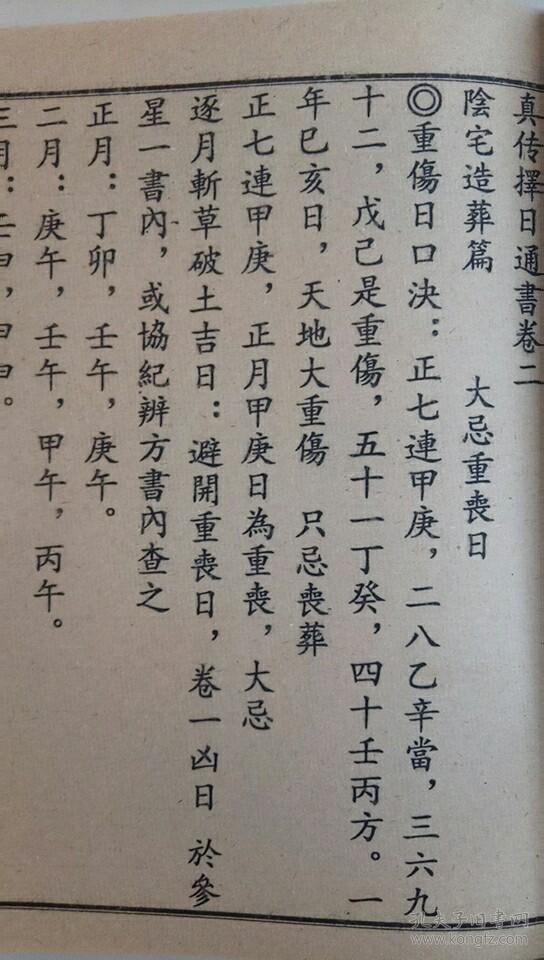 真传擇日通書卷二
陰宅造葬篇 大忌重喪日
◎重傷日口決：正七連甲庚，二八乙辛當，三六九
十二，戊己是重傷，五十一丁癸，四十壬丙方。一
年巳亥日，天地大重傷 只忌喪葬
正七連甲庚，正月甲庚日為重喪，大忌
逐月斬草破土吉日：避開重喪日，卷一凶日 於參
星一書內，或協紀辨方書內查之
正月：丁卯，壬午，庚午。
二月：庚午，壬午，甲午，丙午。
三月：壬申，甲申。
孔夫子旧书网
www.kongfz.com